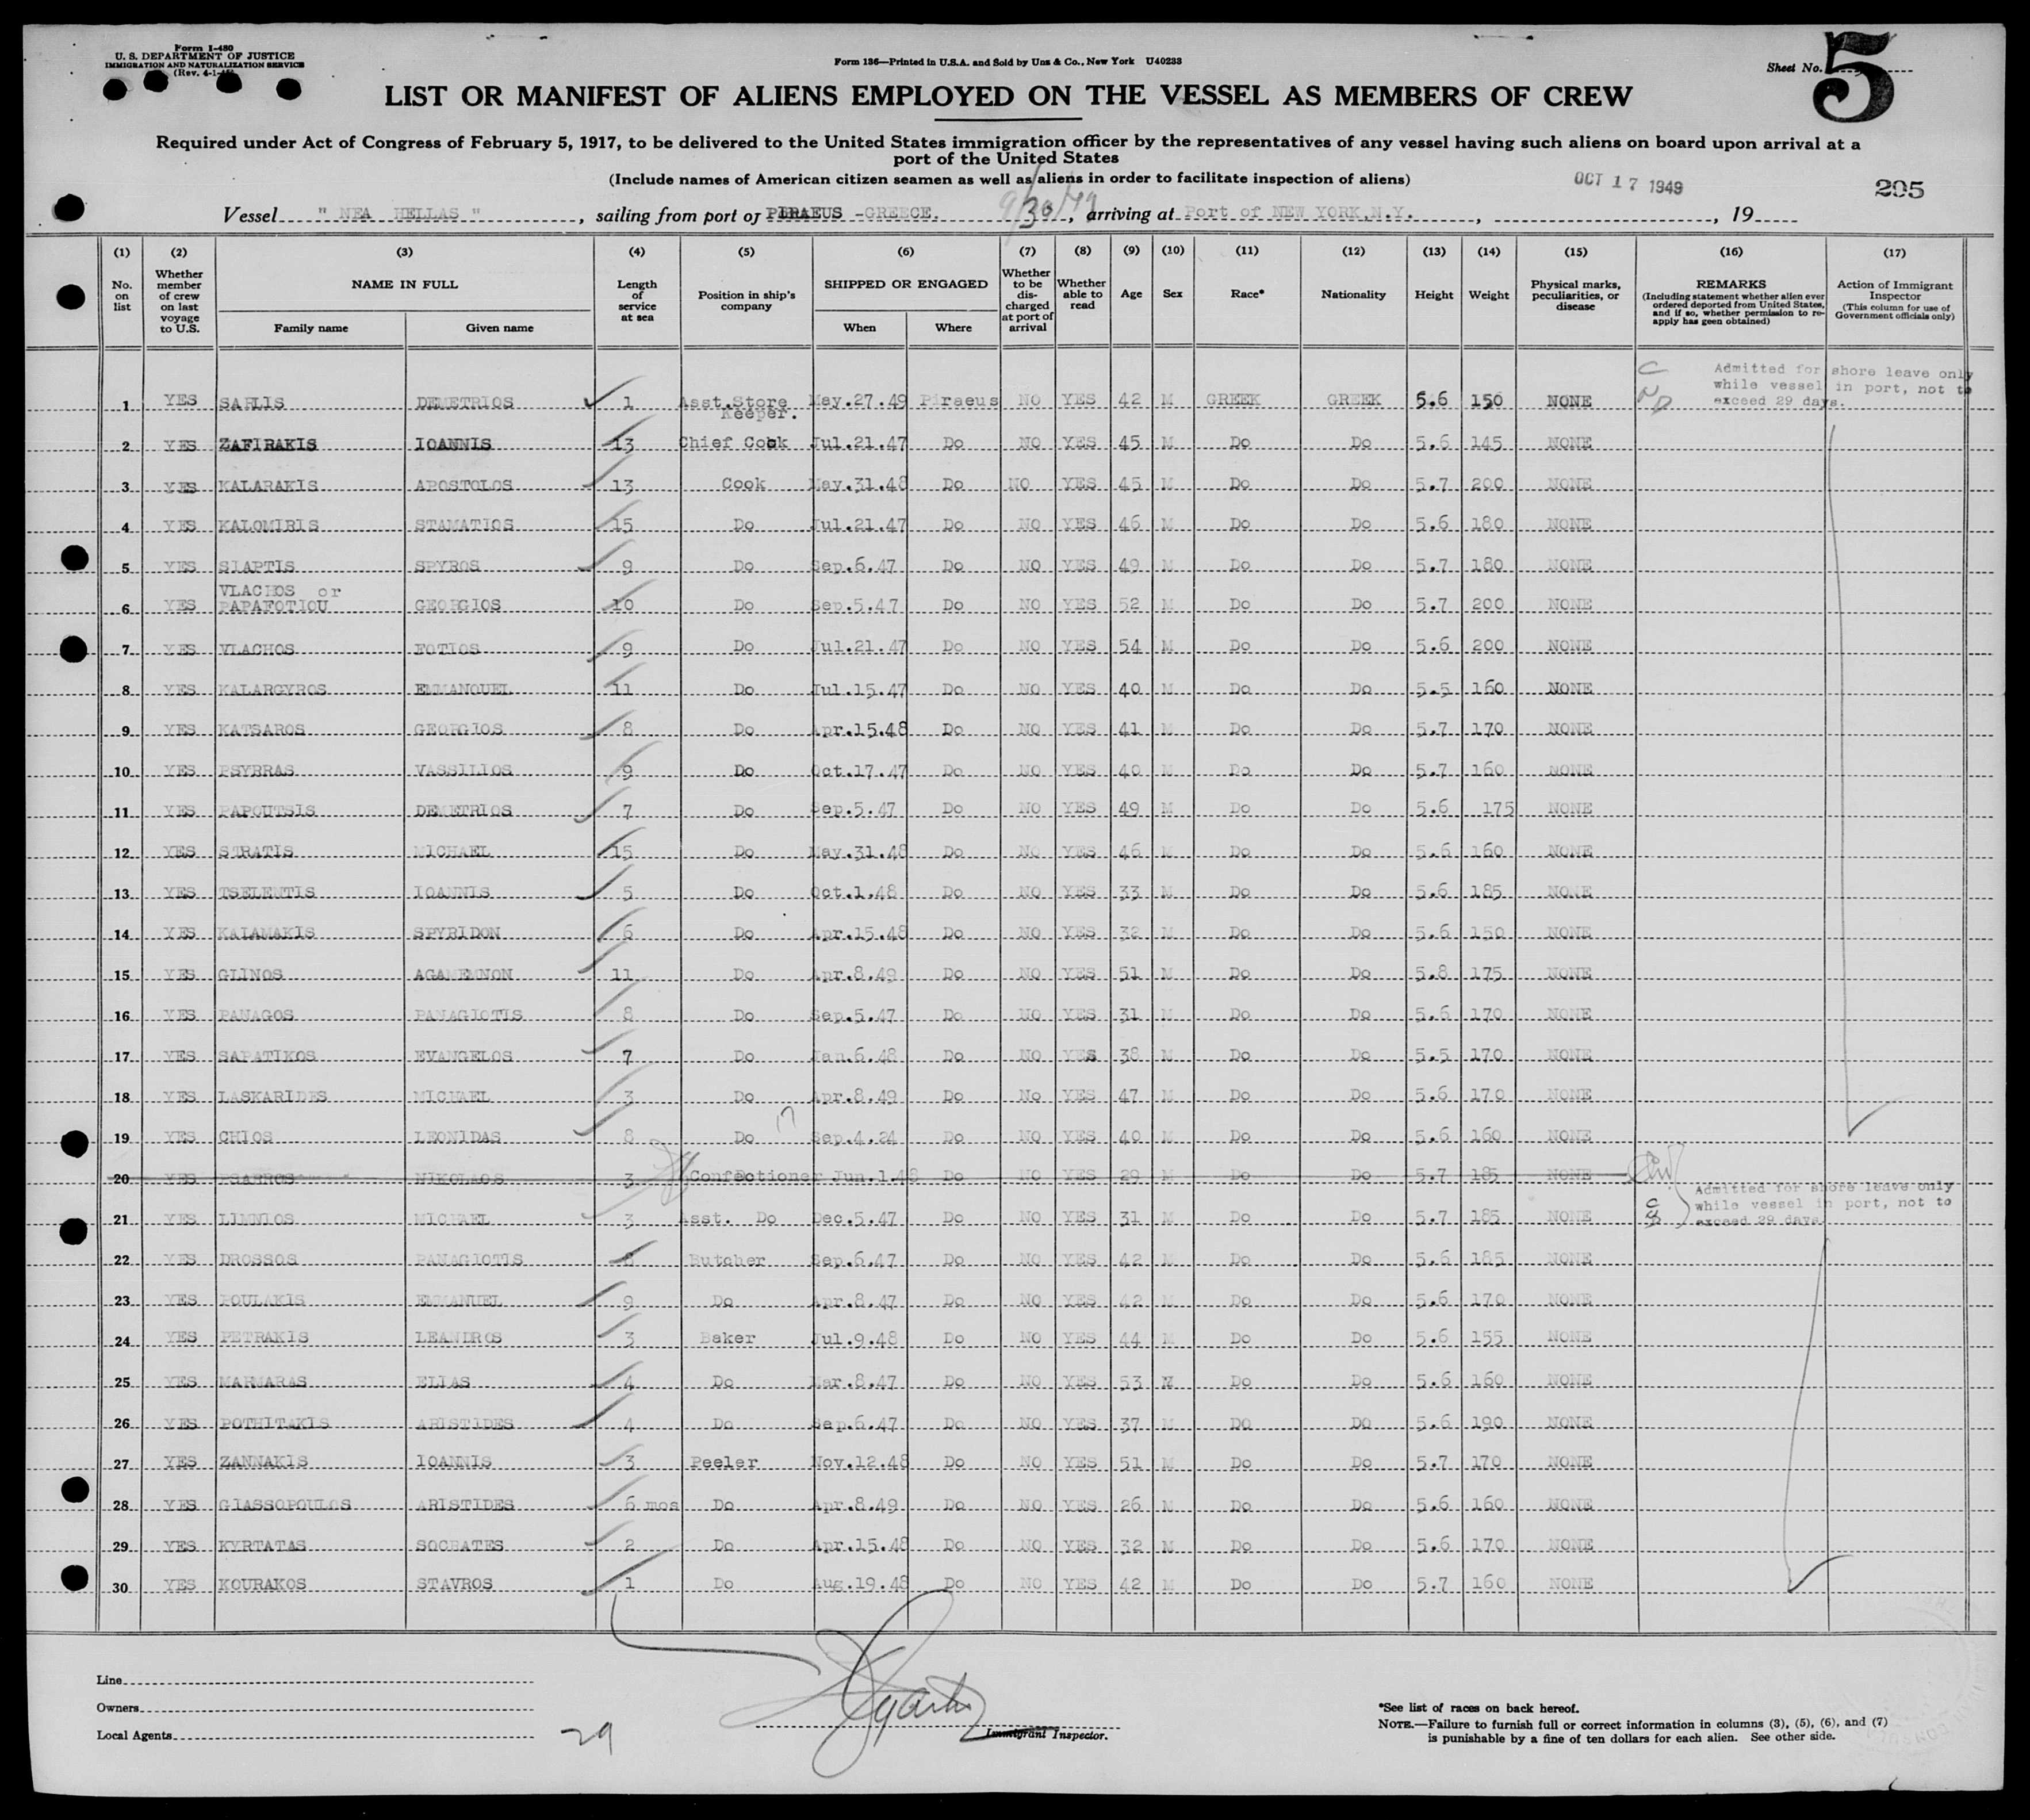 Form I-480
U. S. DEPARTMENT OF JUSTICE
IMMIGRATION AND NATURALIZATION SERVICE
(Rev. 4-1-
Form 136—Printed in U.S.A. and Sold by Unz & Co., New York U40233
Sheet No. 5
LIST OR MANIFEST OF ALIENS EMPLOYED ON THE VESSEL AS MEMBERS OF CREW
Required under Act of Congress of February 5, 1917, to be delivered to the United States immigration officer by the representatives of any vessel having such aliens on board upon arrival at a
port of the United States
(Include names of American citizen seamen as well as aliens in order to facilitate inspection of aliens)
OCT 17 1949
295
Vessel " NEA HELLAS ", sailing from port of PIRAEUS -GREECE. 9/30/49, arriving at Port of NEW YORK,N.Y., , 19
(1) (2) (3) (4) (5) (6) (7) (8) (9) (10) (11) (12) (13) (14) (15) (16) (17)
No. on list
Whether member of crew on last voyage to U.S.
NAME IN FULL
Family name
Given name
Length of service at sea
Position in ship's company
SHIPPED OR ENGAGED
When
Where
Whether to be discharged at port of arrival
Whether able to read
Age
Sex
Race*
Nationality
Height
Weight
Physical marks, peculiarities, or disease
REMARKS
(Including statement whether alien ever ordered deported from United States, and if so, whether permission to re-apply has geen obtained)
Action of Immigrant Inspector
(This column for use of Government officials only)
Admitted for shore leave only
while vessel in port, not to
exceed 29 days.
1 YES SARLIS DEMETRIOS 1 Asst.Store Keeper. May.27.49 Piraeus NO YES 42 M GREEK GREEK 5.6 150 NONE
2 YES ZAFIRAKIS IOANNIS 13 Chief Cook Jul.21.47 Do NO YES 45 M Do Do 5.6 145 NONE
3 YES KALARAKIS APOSTOLOS 13 Cook May.31.48 Do NO YES 45 M Do Do 5.7 200 NONE
4 YES KALOMIRIS STAMATIOS 15 Do Jul.21.47 Do NO YES 46 M Do Do 5.6 180 NONE
5 YES SIAPTIS SPYROS 9 Do Sep.6.47 Do NO YES 49 M Do Do 5.7 180 NONE
6 YES VLACHOS or PAPAFOTIOU GEORGIOS 10 Do Sep.5.47 Do NO YES 52 M Do Do 5.7 200 NONE
7 YES VLACHOS FOTIOS 9 Do Jul.21.47 Do NO YES 54 M Do Do 5.6 200 NONE
8 YES KALARGYROS EMMANOUEL 11 Do Jul.15.47 Do NO YES 40 M Do Do 5.5 160 NONE
9 YES KATSAROS GEORGIOS 8 Do Apr.15.48 Do NO YES 41 M Do Do 5.7 170 NONE
10 YES PSYRRAS VASSILIOS 9 Do Oct.17.47 Do NO YES 40 M Do Do 5.7 160 NONE
11 YES PAPOUTSIS DEMETRIOS 7 Do Sep.5.47 Do NO YES 49 M Do Do 5.6 175 NONE
12 YES STRATIS MICHAEL 15 Do May.31.48 Do NO YES 46 M Do Do 5.6 160 NONE
13 YES TSELENTIS IOANNIS 5 Do Oct.1.48 Do NO YES 33 M Do Do 5.6 185 NONE
14 YES KALAMAKIS SPYRIDON 6 Do Apr.15.48 Do NO YES 32 M Do Do 5.6 150 NONE
15 YES GLINOS AGAMEMNON 11 Do Apr.8.49 Do NO YES 51 M Do Do 5.8 175 NONE
16 YES PANAGOS PANAGIOTIS 8 Do Sep.5.47 Do NO YES 31 M Do Do 5.6 170 NONE
17 YES SAPATIKOS EVANGELOS 7 Do Jan.6.48 Do NO YES 38 M Do Do 5.5 170 NONE
18 YES LASKARIDES MICHAEL 3 Do Apr.8.49 Do No YES 47 M Do Do 5.6 170 NONE
19 YES CHIOS LEONIDAS 8 Do Sep.4.24 Do NO YES 40 M Do Do 5.6 160 NONE
20 YES PSARROS NIKOLAOS 3 Confectioner Jun.1.48 Do NO YES 29 M Do Do 5.7 185 NONE
Admitted for shore leave only
while vessel in port, not to
exceed 29 days.
21 YES LIMNIOS MICHAEL 3 Asst. Do Dec.5.47 Do NO YES 31 M Do Do 5.7 185 NONE
22 YES DROSSOS PANAGIOTIS 8 Butcher Sep.6.47 Do NO YES 42 M Do Do 5.6 185 NONE
23 YES POULAKIS EMMANUEL 9 Do Apr.8.47 Do NO YES 42 M Do Do 5.6 170 NONE
24 YES PETRAKIS LEANDROS 3 Baker Jul.9.48 Do NO YES 44 M Do Do 5.6 155 NONE
25 YES MARMARAS ELIAS 4 Do Mar.8.47 Do NO YES 53 M Do Do 5.6 160 NONE
26 YES POTHITAKIS ARISTIDES 4 Do Sep.6.47 Do NO YES 37 M DO DO 5.6 190 NONE
27 YES ZANNAKIS IOANNIS 3 Peeler Nov.12.48 Do NO YES 51 M Do Do 5.7 170 NONE
28 YES GIASSOPOULOS ARISTIDES 6 mos Do Apr.8.49 Do NO YES 26 M Do Do 5.6 160 NONE
29 YES KYRTATAS SOCRATES 2 Do Apr.15.48 Do NO YES 32 M Do Do 5.6 170 NONE
30 YES KOURAKOS STAVROS 1 Do Aug.19.48 Do NO YES 42 M Do Do 5.7 160 NONE
Line
Owners
Local Agents
29
Immigrant Inspector.
*See list of races on back hereof.
NOTE.—Failure to furnish full or correct information in columns (3), (5), (6), and (7)
is punishable by a fine of ten dollars for each alien. See other side.